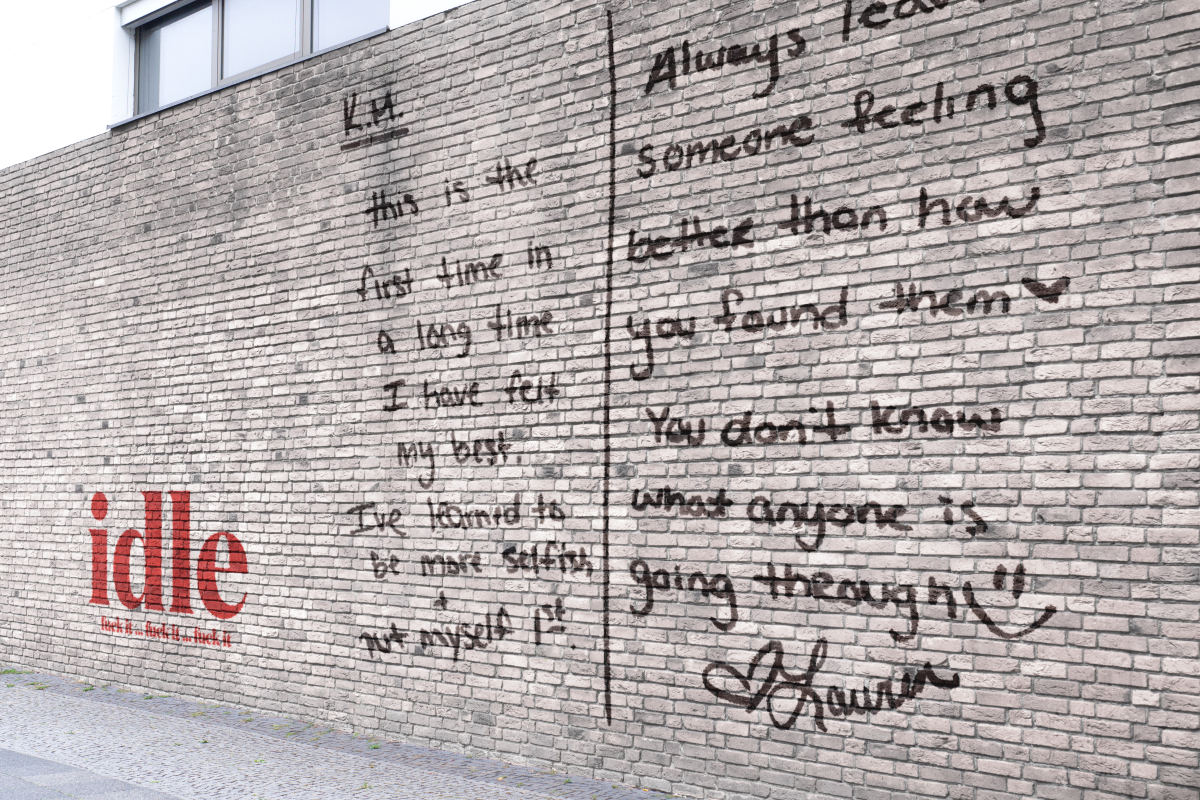 K.M.
this is the
first time in
a long time
I have felt
my best.
I've learned to
be more selfish
+
put myself 1st.
Always leave
someone feeling
better than how
you found them
You don't know
what anyone is
going through
Lauren
idle
fuck it ... fuck it ... fuck it